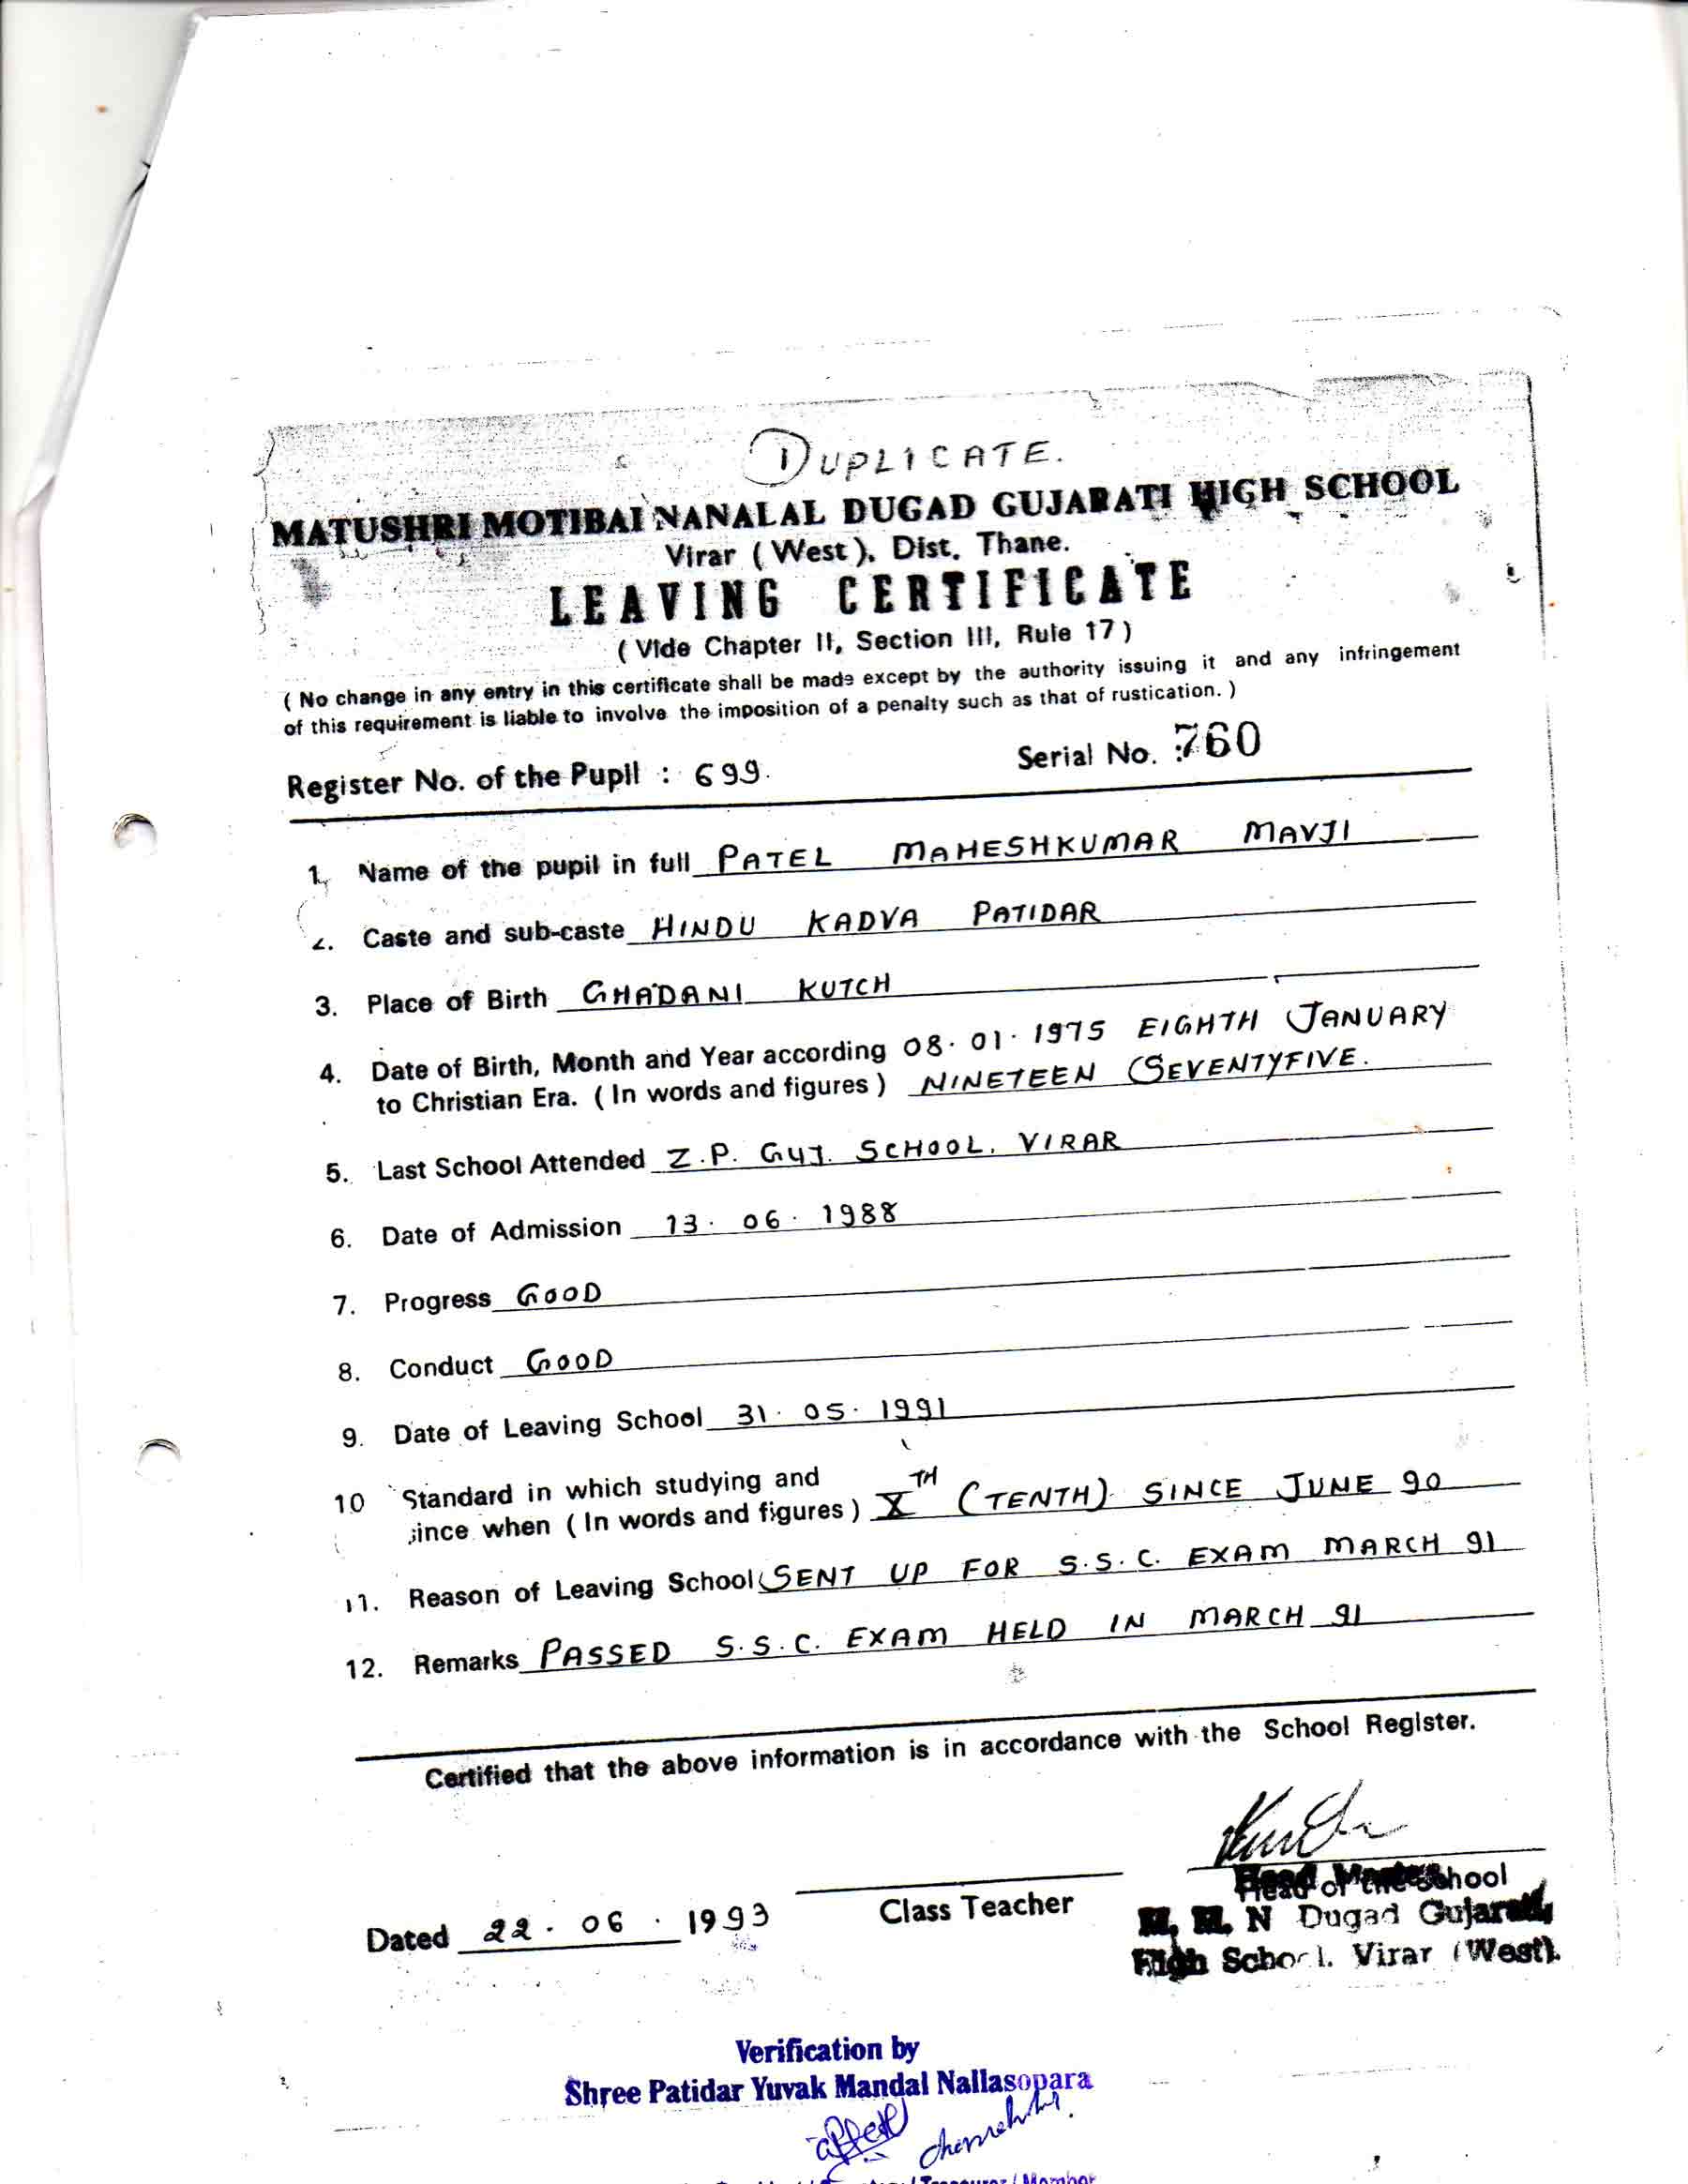 DUPLICATE.
MATUSHRI MOTIBAI NANALAL DUGAD GUJARATI HIGH SCHOOL
Virar (West), Dist. Thane.
LEAVING CERTIFICATE
(Vide Chapter II, Section III, Rule 17)
(No change in any entry in this certificate shall be made except by the authority issuing it and any infringement
of this requirement is liable to involve the imposition of a penalty such as that of rustication.)
Register No. of the Pupil : 699. Serial No. 760
1. Name of the pupil in full PATEL MAHESHKUMAR MAVJI
2. Caste and sub-caste HINDU KADVA PATIDAR
3. Place of Birth GHADANI KUTCH
4. Date of Birth, Month and Year according 08.01.1975 EIGHTH JANUARY
to Christian Era. (In words and figures) NINETEEN SEVENTYFIVE.
5. Last School Attended Z.P. GUJ. SCHOOL, VIRAR
6. Date of Admission 13.06.1988
7. Progress GOOD
8. Conduct GOOD
9. Date of Leaving School 31.05.1991
10 Standard in which studying and
since when (In words and figures) XTH (TENTH) SINCE JUNE 90
11. Reason of Leaving School SENT UP FOR S.S.C. EXAM MARCH 91
12. Remarks PASSED S.S.C. EXAM HELD IN MARCH 91
Certified that the above information is in accordance with the School Register.
Dated 22.06.1993
Class Teacher
Head of the School
M. M. N Dugad Gujarati
High School, Virar (West).
Verification by
Shree Patidar Yuvak Mandal Nallasopara
Treasurer / Member